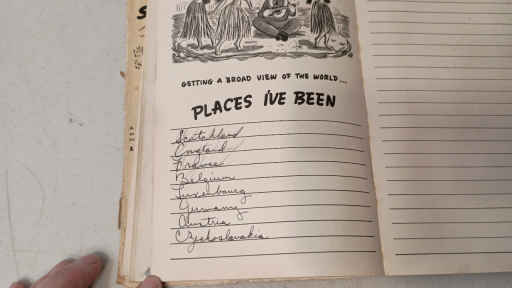 GETTING A BROAD VIEW OF THE WORLD...
PLACES I'VE BEEN
Scotchland
England
France
Belgium
Luxenbourg
Germany
Austria
Czechoslovakia